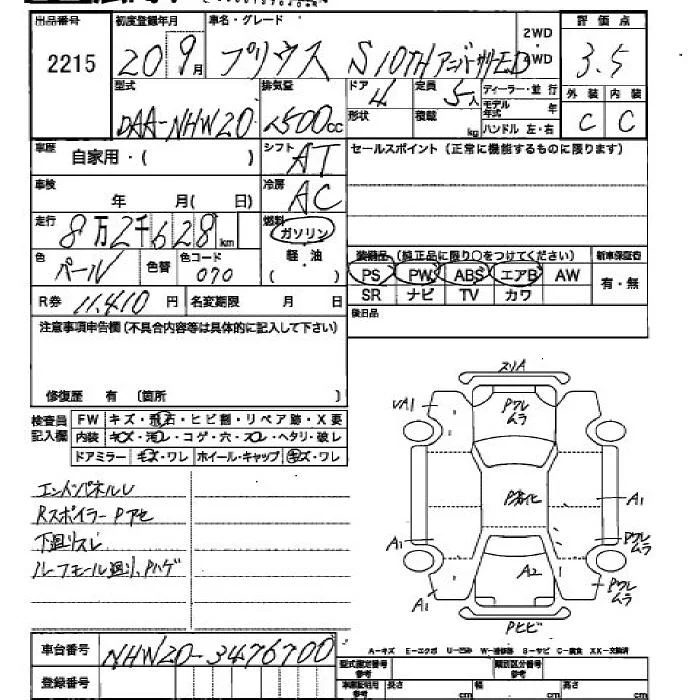 出品番号 初度登録年月 車名・グレード 2WD 評価点
2215 20 9月 プリウス S 10TH アニバーサリーED 4WD 3.5
型式 排気量 ドア 4 定員 5人 ディーラー・並行 外装 内装
DAA-NHW20 1500cc 形状 積載 kg モデル年式 年 ハンドル 左・右 C C
車歴 自家用・( ) シフト AT セールスポイント(正常に機能するものに限ります)
車検 年 月( 日) 冷房 AC
走行 8万2千628km 燃料 ガソリン
色 パール 色替 色コード 070 軽・油 ( ) 装備品(純正品に限り○をつけてください) 新車保証書
PS PW ABS エアB AW 有・無
R券 11,410円 名変期限 月 日 SR ナビ TV カワ
注意事項申告欄(不具合内容等は具体的に記入して下さい) 後日品
修復歴 有 〔箇所 〕
検査員記入欄 FW キズ・飛石・ヒビ割・リペア跡・X要
内装 キズ・汚レ・コゲ・穴・スレ・ヘタリ・破レ
ドアミラー キズ・ワレ ホイール・キャップ キズ・ワレ
エンドパネルU
Rスポイラー Pアセ
下廻リスレ
ルーフモール廻リ、Pハゲ
スリA
UA1 Pワレ ムラ
P劣化
A1 A1
Pワレ ムラ
A2
A1 Pワレ ムラ
Pヒビ
車台番号 NHW20-3476700
A-キズ E-エクボ U-凹み W-補修跡 S-サビ C-腐食 XX-交換済
登録番号 型式指定番号 参考 類別区分番号 参考
車庫証明用 参考 長さ cm 幅 cm 高さ cm